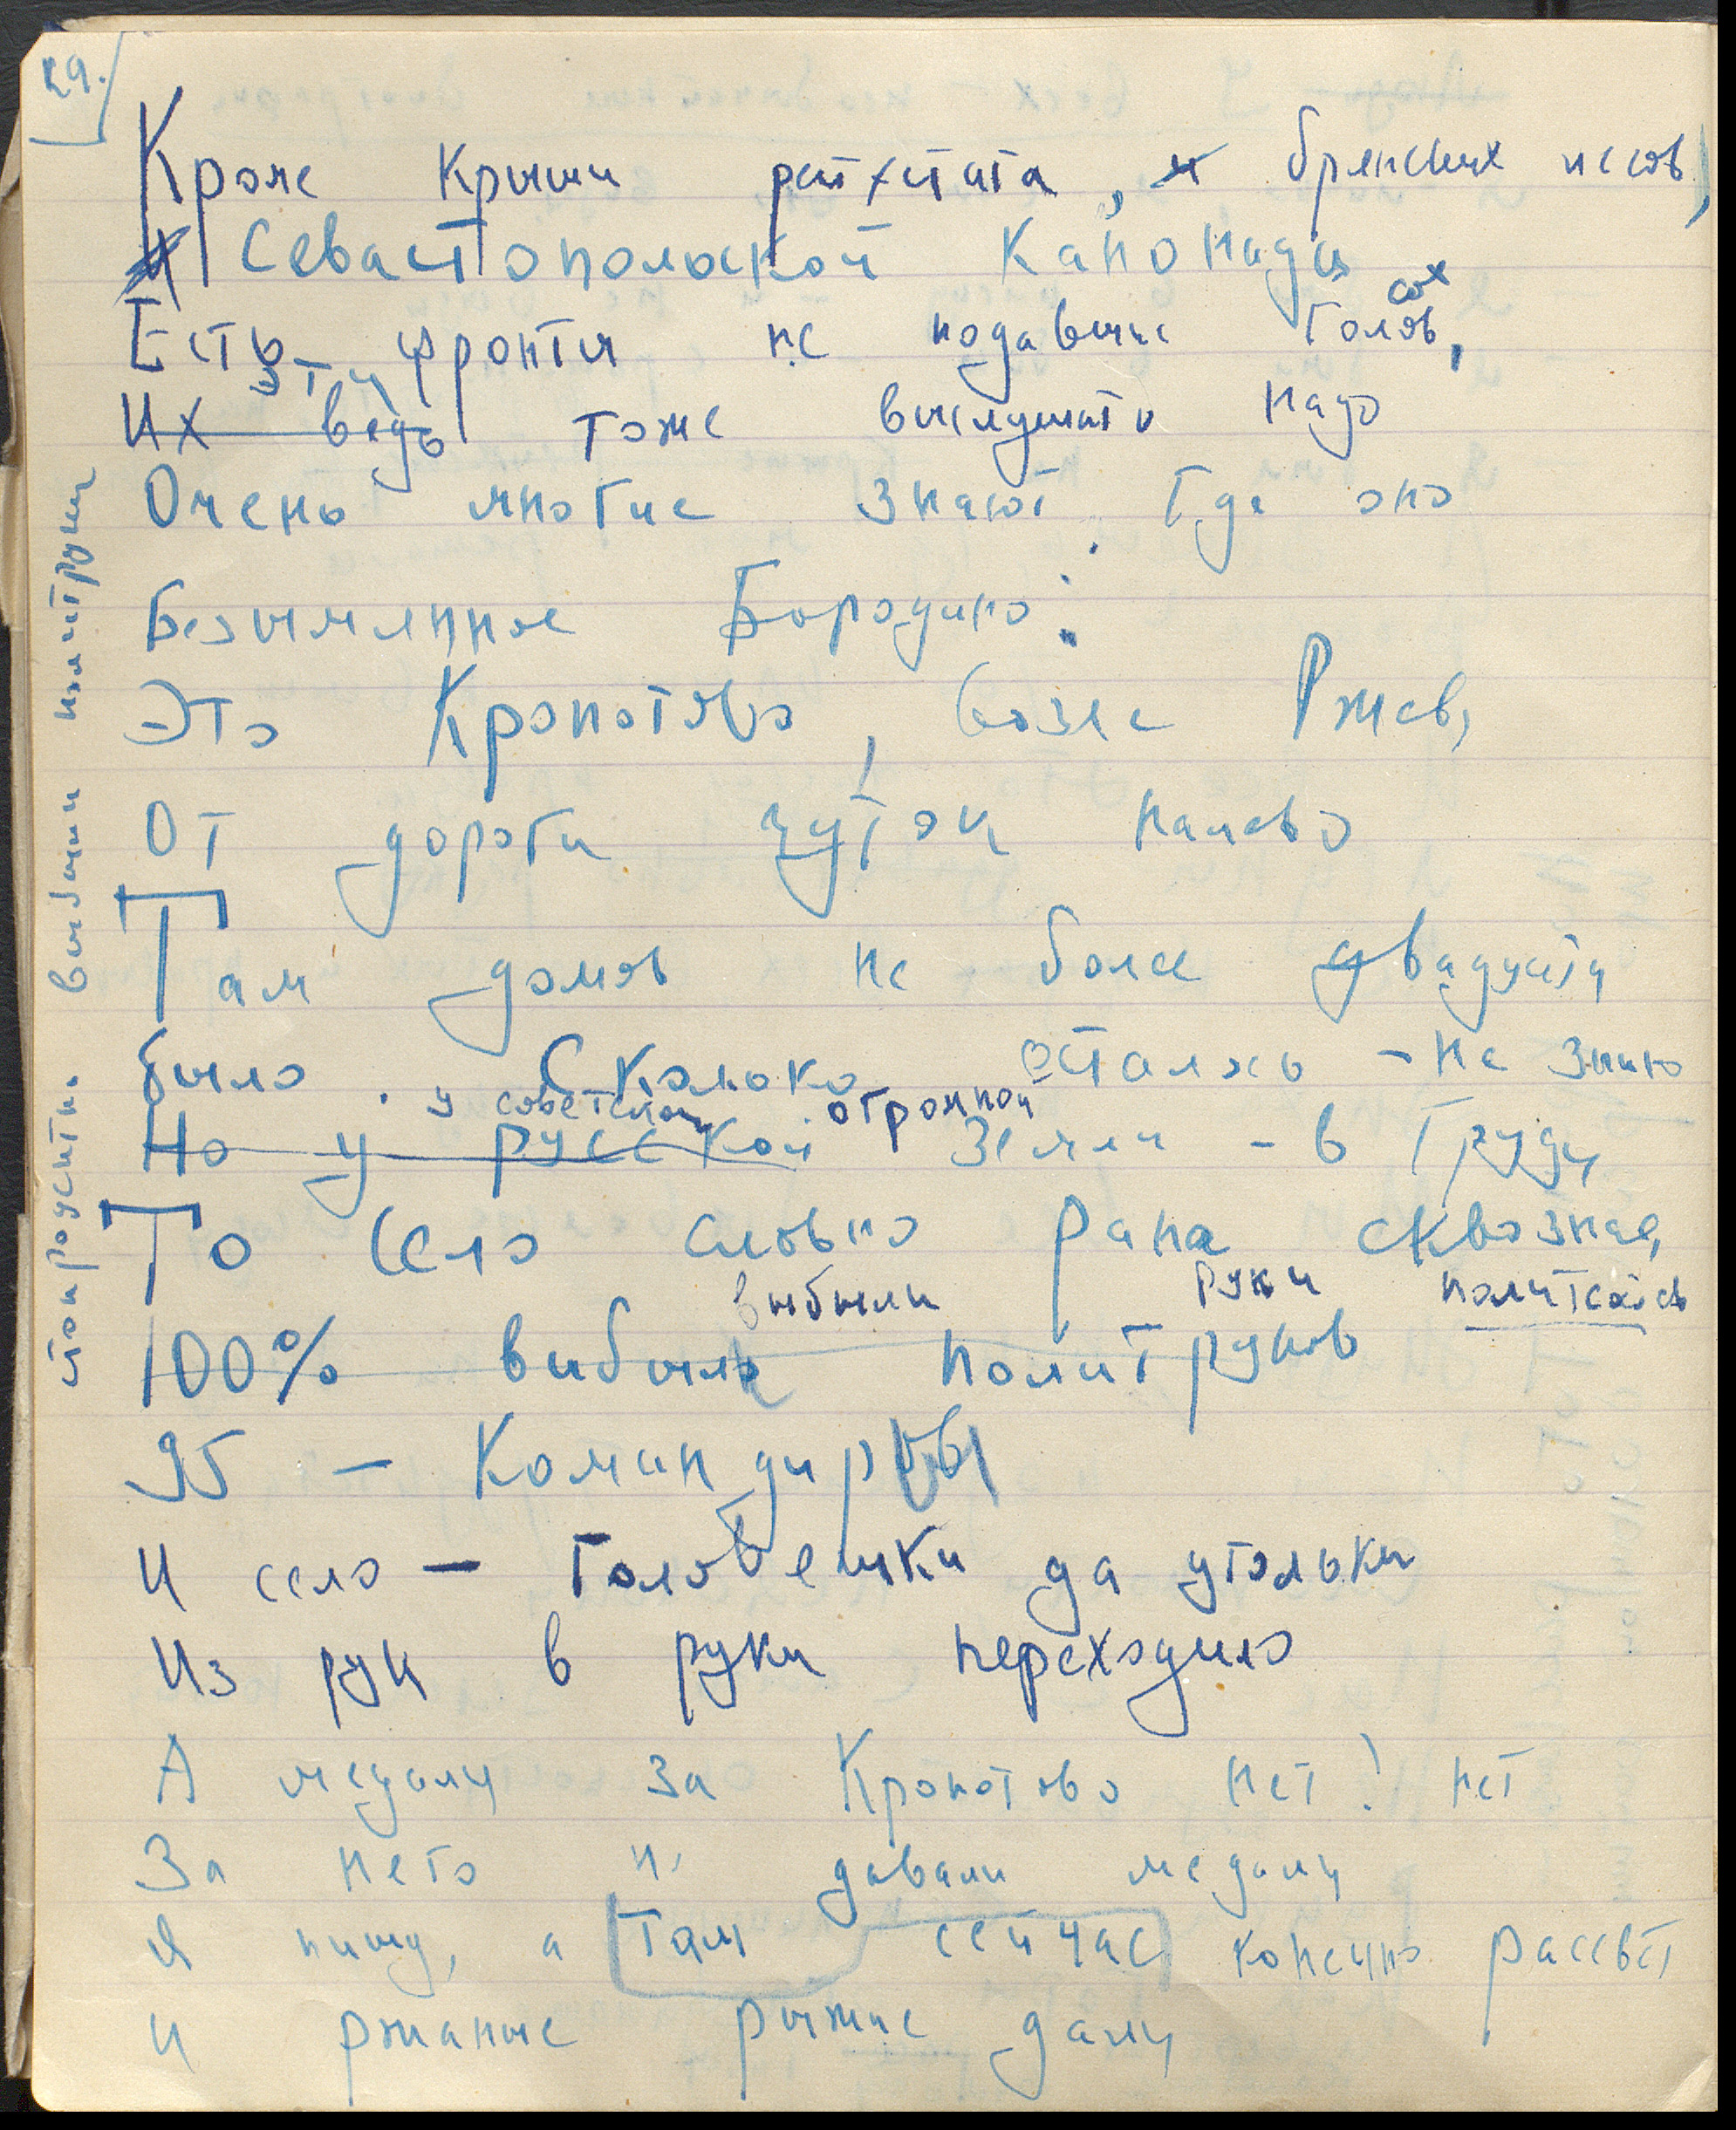 29.
Кроме крыши рейхстага, и брянских лесов,
и Севастопольской канонады
Есть фронты не подавшие голос,
сах
эти
Их ведь тоже выслушать надо
Очень многие знают где оно
Безымянное Бородино:
Это Кропотово, возле Ржева,
От дороги чуток налево
Там домов не более двадцати
было. Сколько осталось - не знаю
у советской огромной
Но у русской земли - в груди
То село словно рана сквозная,
выбыли руки политсостав
100% выбыло политруков
95 - командиры
И село - головешки да угольки
Из рук в руки переходило
А медали за Кропотово нет! нет
За него не давали медали
Я пишу, а там сейчас конечно рассвет
и ржаные рыжие дали
стопроцентно выбыли политруки